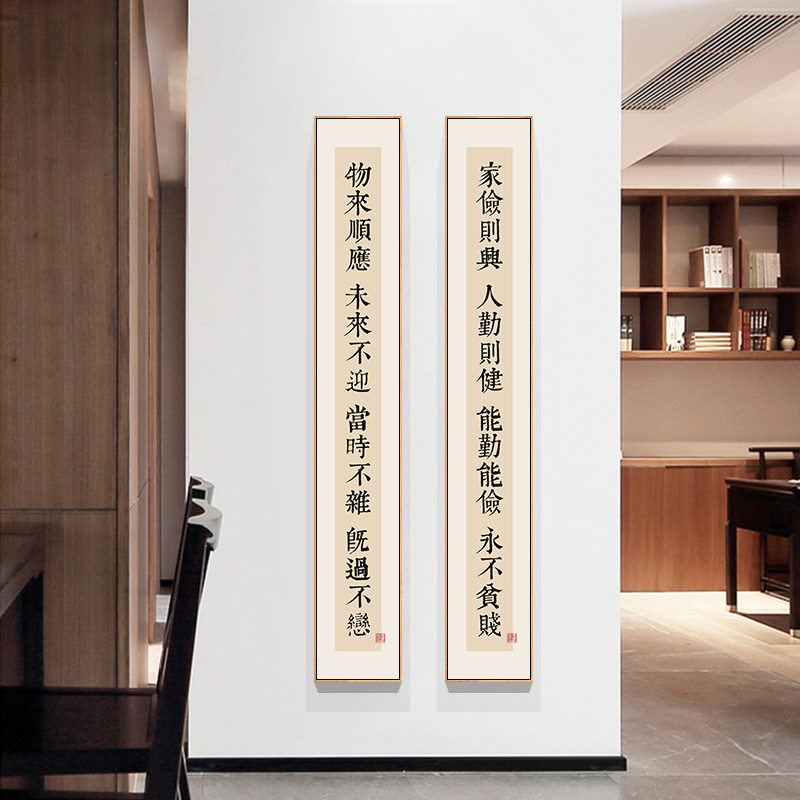 家儉則興 人勤則健 能勤能儉 永不貧賤
物來順應 未來不迎 當時不雜 既過不戀